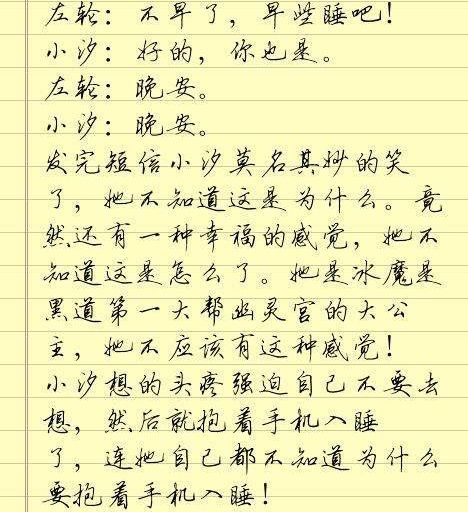 左轮：不早了，早些睡吧！
小汐：好的，你也是。
左轮：晚安。
小汐：晚安。
发完短信小汐莫名其妙的笑
了，她不知道这是为什么。竟
然还有一种幸福的感觉，她不
知道这是怎么了。她是冰魔是
黑道第一大帮幽灵宫的大公
主，她不应该有这种感觉！
小汐想的头疼强迫自己不要去
想，然后就抱着手机入睡
了，连她自己都不知道为什么
要抱着手机入睡！